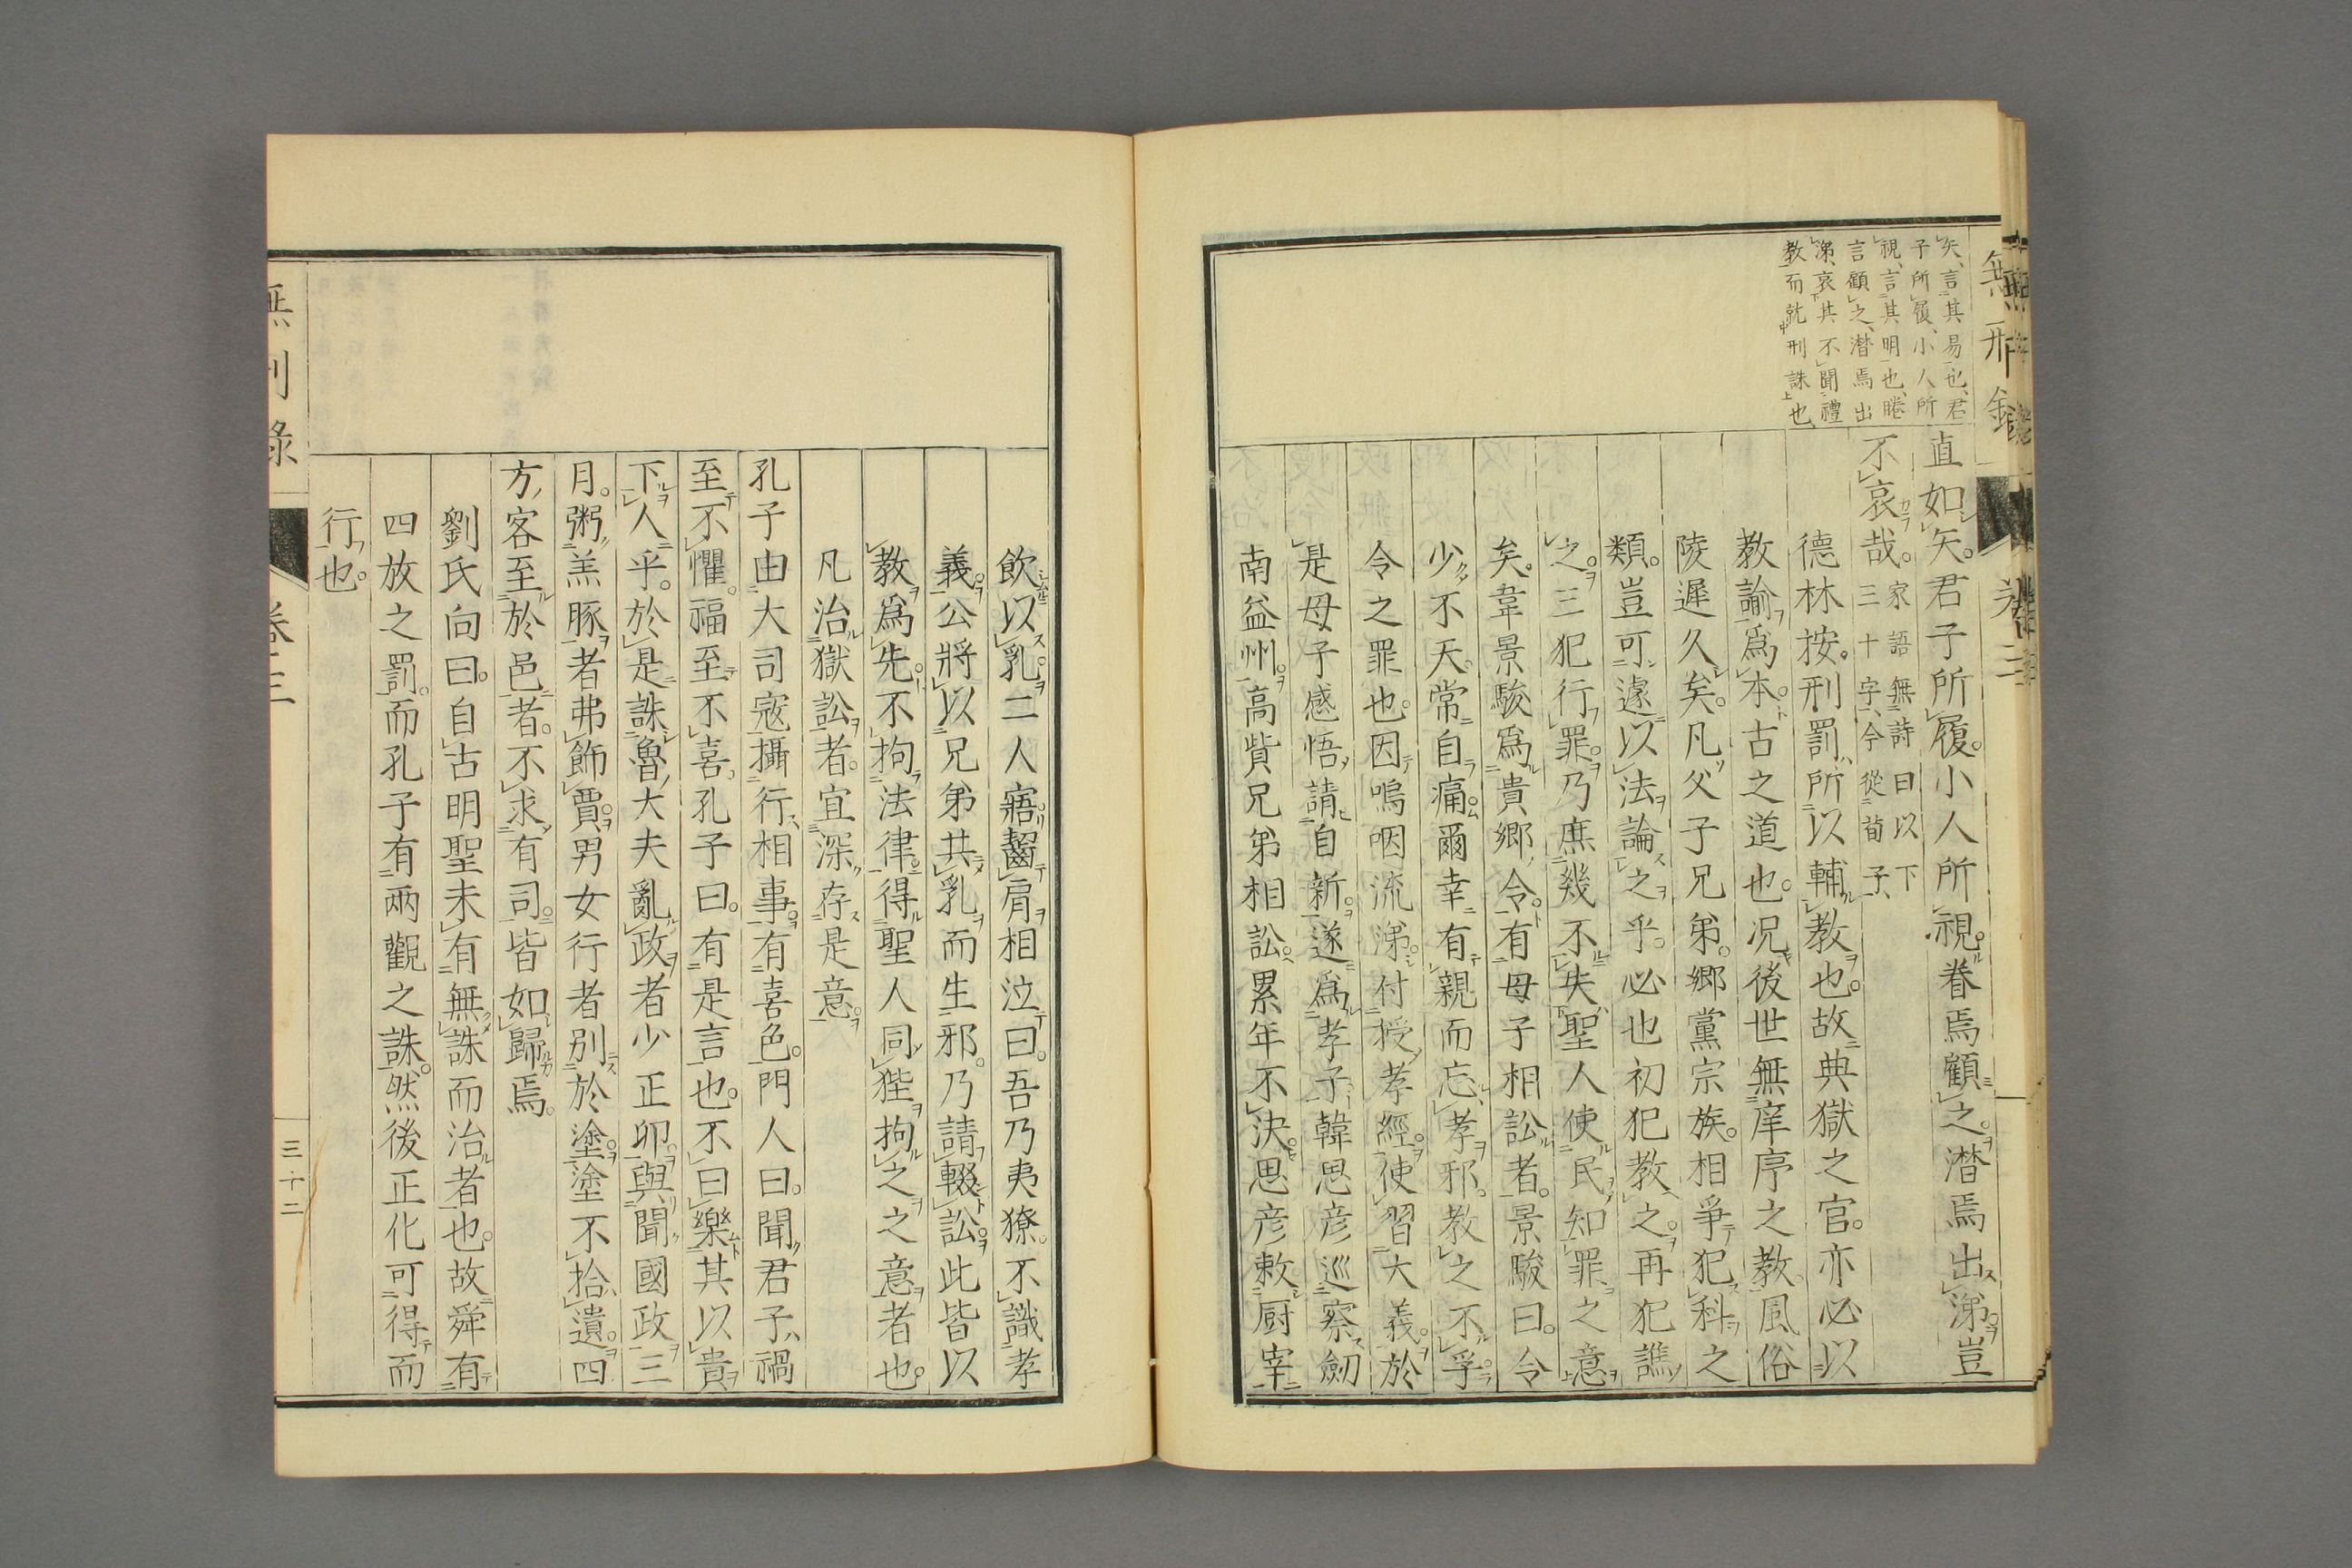 無刑錄
卷三
矢、言其易也、君
子所履、小人所
視、言其明也、睠
言顧之、潛焉出
涕、哀其不聞禮
教而就刑誅也
直如矢。君子所履。小人所視。眷焉顧之。潛焉出涕。豈
不哀哉。
家語無詩曰以下
三十字、今從荀子、
德林按。刑罰所以輔教也。故典獄之官。亦必以
教諭爲本。古之道也。況後世無庠序之教。風俗
陵遲久矣。凡父子兄弟。鄉黨宗族。相爭犯科之
類。豈可遽以法論之乎。必也初犯教之。再犯譙
之。三犯行罪。乃庶幾不失聖人使民知罪之意
矣。韋景駿爲貴鄉令。有母子相訟者。景駿曰。令
少不天。常自痛。爾幸有親而忘孝邪。教之不孚
令之罪也。因嗚咽流涕。付授孝經。使習大義。於
是母子感悟。請自新。遂爲孝子。韓思彥巡察劒
南益州。高貲兄弟相訟。累年不決。思彥敕厨宰
飲以乳。二人寤齧肩相泣曰。吾乃夷獠。不識孝
義。公將以兄弟共乳而生邪。乃請輟訟。此皆以
教爲先。不拘法律。得聖人同狴拘之之意者也。
凡治獄訟者。宜深存是意。
孔子由大司寇攝行相事。有喜色。門人曰。聞君子、禍
至不懼。福至不喜。孔子曰。有是言也。不曰樂其以貴
下人乎。於是誅魯大夫亂政者少正卯。與聞國政三
月。粥羔豚者弗飾賈。男女行者別於塗。塗不拾遺。四
方客至於邑者。不求有司。皆如歸焉。
劉氏向曰。自古明聖未有無誅而治者也。故舜有
四放之罰。而孔子有兩觀之誅。然後正化可得而
行也。
無刑錄
卷三
三十二